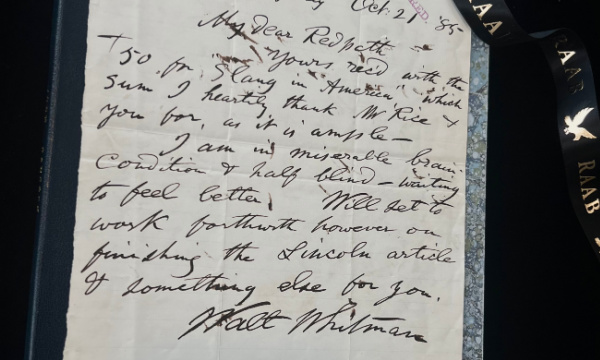 Oct: 21 '85
My dear Redpath –
Yours rec'd with the
$50 for "Slang in America" which
sum I heartily thank Mr Rice &
you for, as it is ample –
I am in miserable brain
condition & half blind – waiting
to feel better. Will set to
work forthwith however on
finishing the Lincoln article
& something else for you.
Walt Whitman
RED.
RAAB
RAAB
RAAB